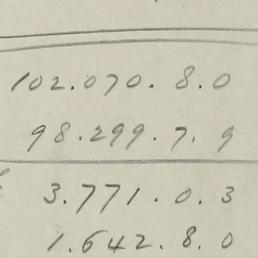 102.070.8.0
98.299.7.9
3.771.0.3
1.642.8.0